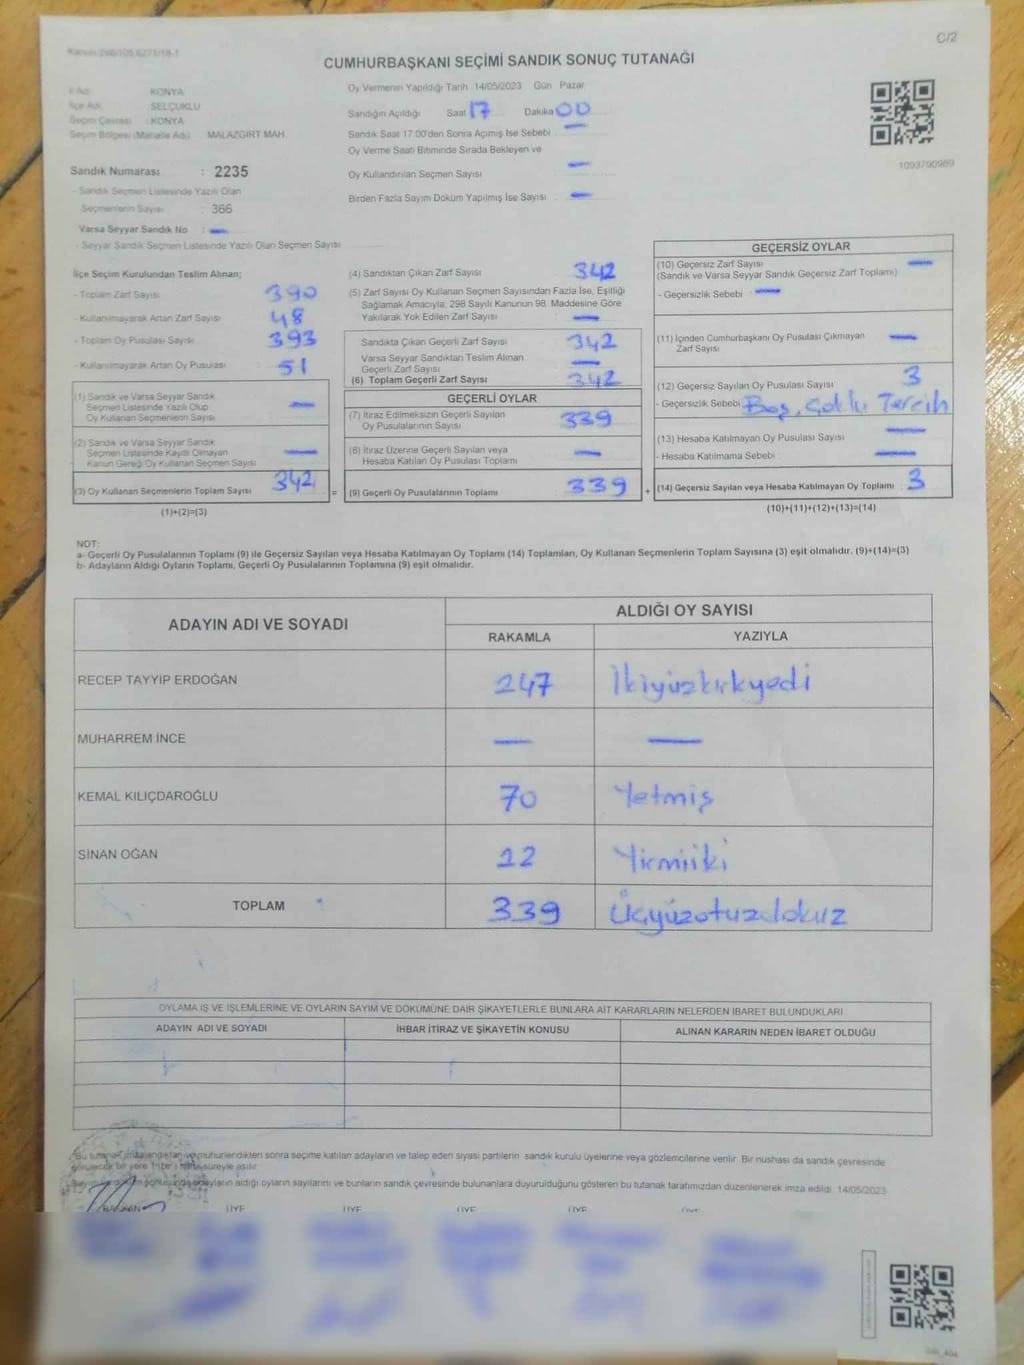 C/2
CUMHURBAŞKANI SEÇİMİ SANDIK SONUÇ TUTANAĞI
Oy Vermenin Yapıldığı Tarih 14/05/2023 Gün Pazar
Sandığın Açıldığı Saat 17 Dakika 00
Sandık Saat 17:00'den Sonra Açımış İse Sebebi —
Oy Verme Saati Bitiminde Sırada Bekleyen ve
Oy Kullandırılan Seçmen Sayısı —
Birden Fazla Sayım Döküm Yapılmış İse Sayısı —
1093790989
İl Adı KONYA
İlçe Adı SELÇUKLU
Seçim Çevresi : KONYA
Seçim Bölgesi (Mahalle Adı) MALAZGİRT MAH.
Sandık Numarası : 2235
- Sandık Seçmen Listesinde Yazılı Olan
Seçmenlerin Sayısı : 366
Varsa Seyyar Sandık No : —
- Seyyar Sandık Seçmen Listesinde Yazılı Olan Seçmen Sayısı
İlçe Seçim Kurulundan Teslim Alınan;
- Toplam Zarf Sayısı 390
- Kullanılmayarak Artan Zarf Sayısı 48
- Toplam Oy Pusulası Sayısı 393
- Kullanılmayarak Artan Oy Pusulası 51
(1) Sandık ve Varsa Seyyar Sandık
Seçmen Listesinde Yazılı Olup
Oy Kullanan Seçmenlerin Sayısı —
(2) Sandık ve Varsa Seyyar Sandık
Seçmen Listesinde Kaydı Olmayan
Kanun Gereği Oy Kullanan Seçmen Sayısı —
(3) Oy Kullanan Seçmenlerin Toplam Sayısı 342 =
(1)+(2)=(3)
(4) Sandıktan Çıkan Zarf Sayısı 342
(5) Zarf Sayısı Oy Kullanan Seçmen Sayısından Fazla İse, Eşitliği
Sağlamak Amacıyla, 298 Sayılı Kanunun 98. Maddesine Göre
Yakılarak Yok Edilen Zarf Sayısı —
Sandıkta Çıkan Geçerli Zarf Sayısı 342
Varsa Seyyar Sandıktan Teslim Alınan
Geçerli Zarf Sayısı —
(6) Toplam Geçerli Zarf Sayısı 342
GEÇERLİ OYLAR
(7) İtiraz Edilmeksizin Geçerli Sayılan
Oy Pusulalarının Sayısı 339
(8) İtiraz Üzerine Geçerli Sayılan veya
Hesaba Katılan Oy Pusulası Toplamı —
(9) Geçerli Oy Pusulalarının Toplamı 339 +
GEÇERSİZ OYLAR
(10) Geçersiz Zarf Sayısı —
(Sandık ve Varsa Seyyar Sandık Geçersiz Zarf Toplamı)
- Geçersizlik Sebebi —
(11) İçinden Cumhurbaşkanı Oy Pusulası Çıkmayan
Zarf Sayısı —
(12) Geçersiz Sayılan Oy Pusulası Sayısı 3
- Geçersizlik Sebebi Boş, Çoklu Tercih
(13) Hesaba Katılmayan Oy Pusulası Sayısı —
- Hesaba Katılmama Sebebi —
(14) Geçersiz Sayılan veya Hesaba Katılmayan Oy Toplamı 3
(10)+(11)+(12)+(13)=(14)
NOT:
a- Geçerli Oy Pusulalarının Toplamı (9) ile Geçersiz Sayılan veya Hesaba Katılmayan Oy Toplamı (14) Toplamları, Oy Kullanan Seçmenlerin Toplam Sayısına (3) eşit olmalıdır. (9)+(14)=(3)
b- Adayların Aldığı Oyların Toplamı, Geçerli Oy Pusulalarının Toplamına (9) eşit olmalıdır.
ADAYIN ADI VE SOYADI ALDIĞI OY SAYISI
RAKAMLA YAZIYLA
RECEP TAYYİP ERDOĞAN 247 İkiyüzkırkyedi
MUHARREM İNCE — —
KEMAL KILIÇDAROĞLU 70 Yetmiş
SİNAN OĞAN 22 Yirmiiki
TOPLAM 339 Üçyüzotuzdokuz
OYLAMA İŞ VE İŞLEMLERİNE VE OYLARIN SAYIM VE DÖKÜMÜNE DAİR ŞİKAYETLERLE BUNLARA AİT KARARLARIN NELERDEN İBARET BULUNDUKLARI
ADAYIN ADI VE SOYADI İHBAR İTİRAZ VE ŞİKAYETİN KONUSU ALINAN KARARIN NEDEN İBARET OLDUĞU
Bu mühürlendikten sonra seçime katılan adayların ve talep eden siyasi partilerin sandık kurulu üyelerine veya gözlemcilerine verilir. Bir nüshası da sandık çevresinde
bir yere süreyle asılır
adayların aldığı oyların sayılarını ve bunların sandık çevresinde bulunanlara duyurulduğunu gösteren bu tutanak tarafımızdan düzenlenerek imza edildi. 14/05/2023
BAŞKAN ÜYE ÜYE ÜYE ÜYE ÜYE